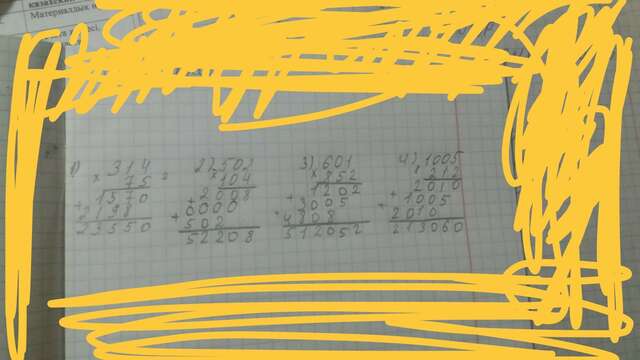 Материалдық
1) 314
× 75
1570
+ 2198
23550
2) 502
× 104
2008
+ 0000
+ 502
52208
3) 601
× 852
1202
+ 3005
+ 4808
512052
4) 1005
× 212
2010
+ 1005
+ 2010
213060